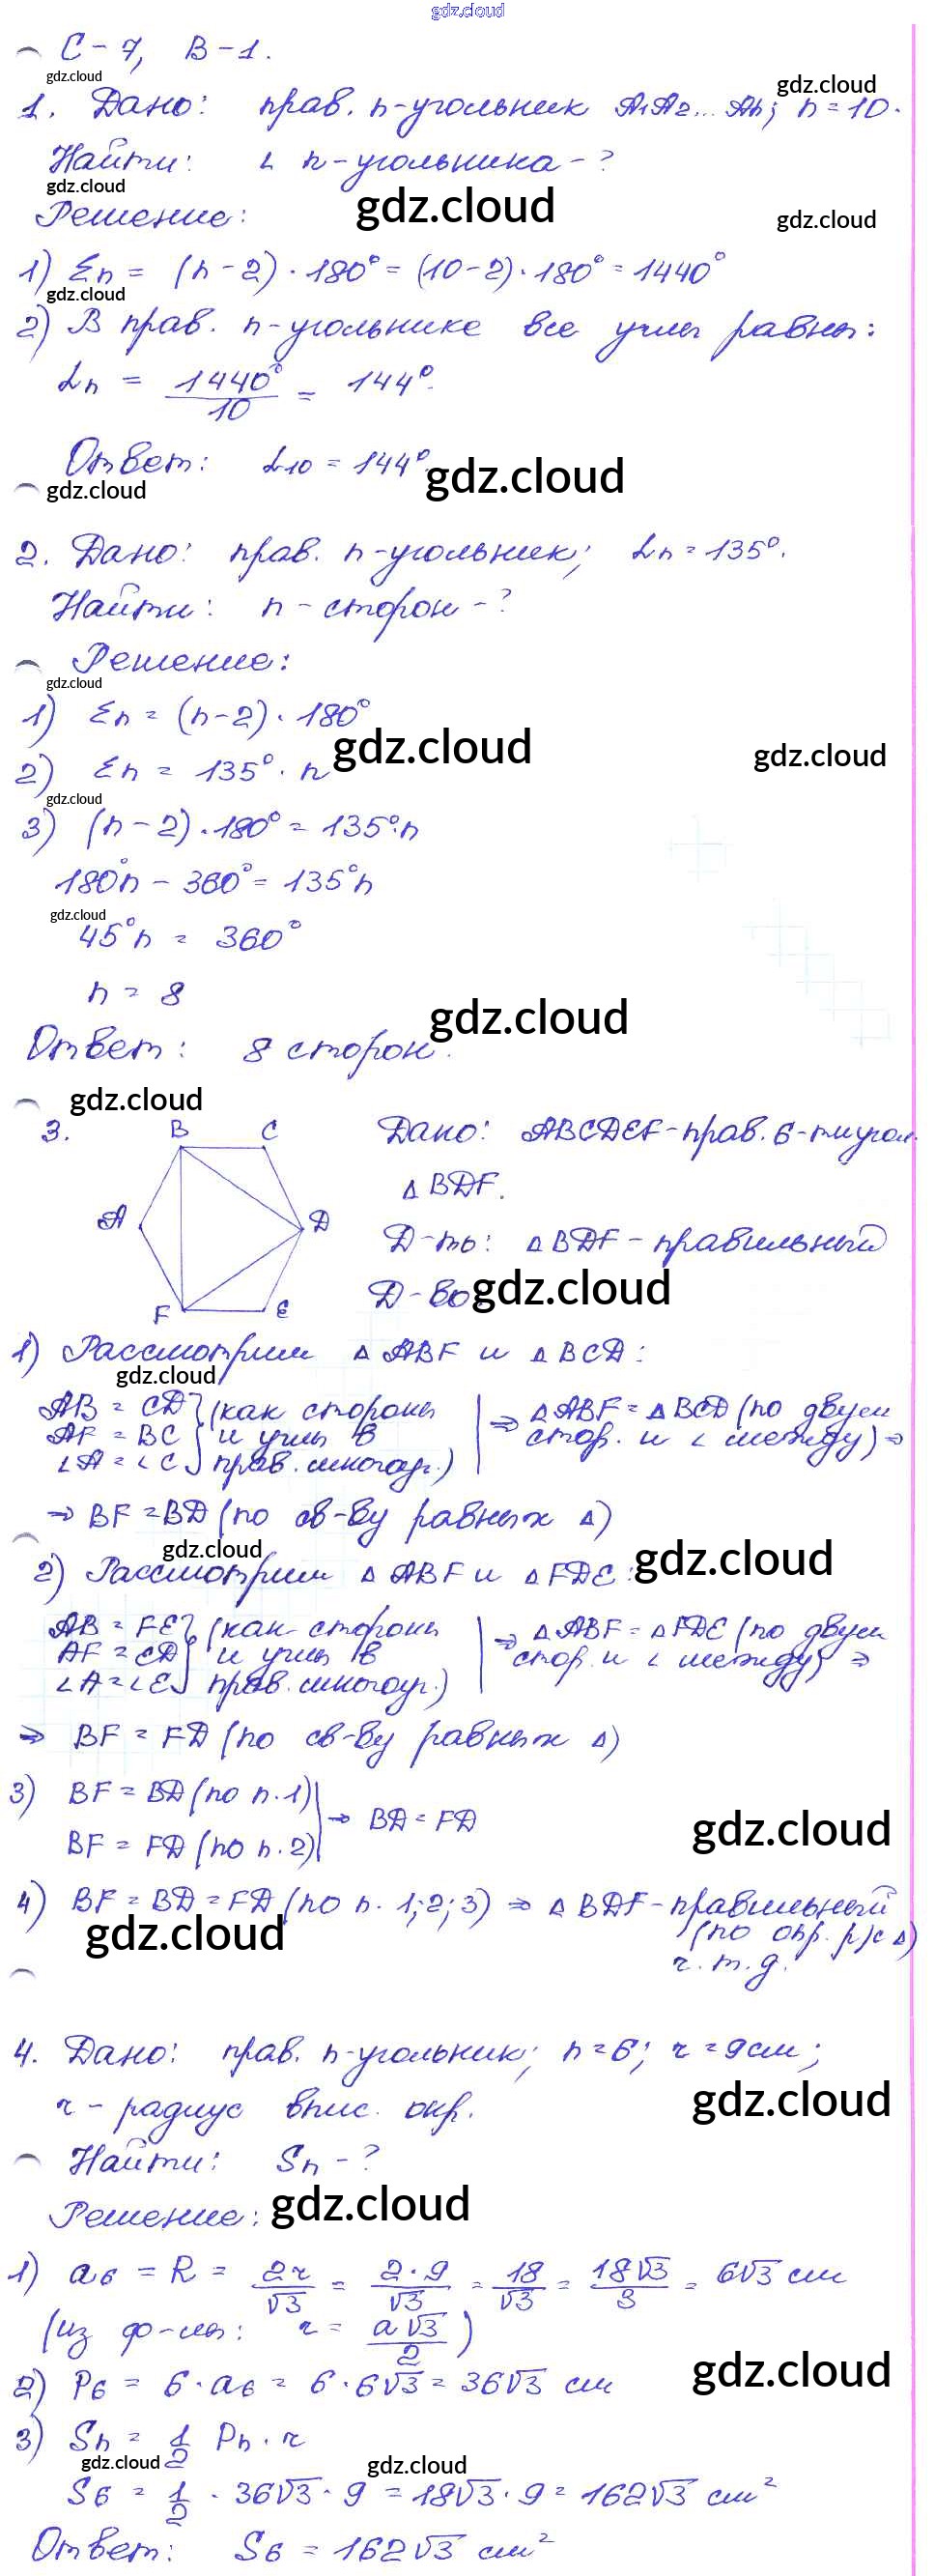 gdz.cloud
С-7, В-1.
gdz.cloud
gdz.cloud
1. Дано: прав. n-угольник A₁A₂...An; n=10.
Найти: ∠ n-угольника-?
gdz.cloud
gdz.cloud
gdz.cloud
Решение:
1) Σn = (n-2)·180° = (10-2)·180° = 1440°
gdz.cloud
2) В прав. n-угольнике все углы равны:
∠n = 1440°/10 = 144°.
Ответ: ∠10 = 144°.
gdz.cloud
gdz.cloud
2. Дано: прав. n-угольник; ∠n = 135°.
Найти: n-сторон-?
Решение:
gdz.cloud
1) Σn = (n-2)·180°
gdz.cloud
gdz.cloud
2) Σn = 135°·n
gdz.cloud
3) (n-2)·180° = 135°·n
180°n - 360° = 135°n
gdz.cloud
45°n = 360°
n = 8
gdz.cloud
Ответ: 8 сторон.
gdz.cloud
3.
B C
A D
F E
Дано: ABCDEF-прав. 6-тиугол.
△BDF.
Д-ть: △BDF-правильный
Д-во
gdz.cloud
1) Рассмотрим △ABF и △BCD:
gdz.cloud
AB = CD } (как стороны | ⇒ △ABF = △BCD (по двум
AF = BC } и углы в | стор. и ∠ между) ⇒
∠A = ∠C } прав. многоуг.) |
⇒ BF = BD (по св-ву равных △)
gdz.cloud
gdz.cloud
2) Рассмотрим △ABF и △FDE:
AB = FE } (как стороны | ⇒ △ABF = △FDE (по двум
AF = CD } и углы в | стор. и ∠ между) ⇒
∠A = ∠E } прав. многоуг.) |
⇒ BF = FD (по св-ву равных △)
3) BF = BD (по п.1) | ⇒ BD = FD
BF = FD (по п.2) |
gdz.cloud
4) BF = BD = FD (по п. 1;2;3) ⇒ △BDF-правильный
gdz.cloud
(по опр. р/с △)
ч.т.д.
4. Дано: прав. n-угольник; n=6; r=9см;
gdz.cloud
r - радиус впис. окр.
Найти: Sn-?
gdz.cloud
Решение:
1) a₆ = R = 2r/√3 = 2·9/√3 = 18/√3 = 18√3/3 = 6√3 см
(из ф-лы: r = a√3/2)
gdz.cloud
2) P₆ = 6·a₆ = 6·6√3 = 36√3 см
3) Sn = 1/2 Pn·r
gdz.cloud
gdz.cloud
S₆ = 1/2 · 36√3 · 9 = 18√3·9 = 162√3 см²
Ответ: S₆ = 162√3 см²